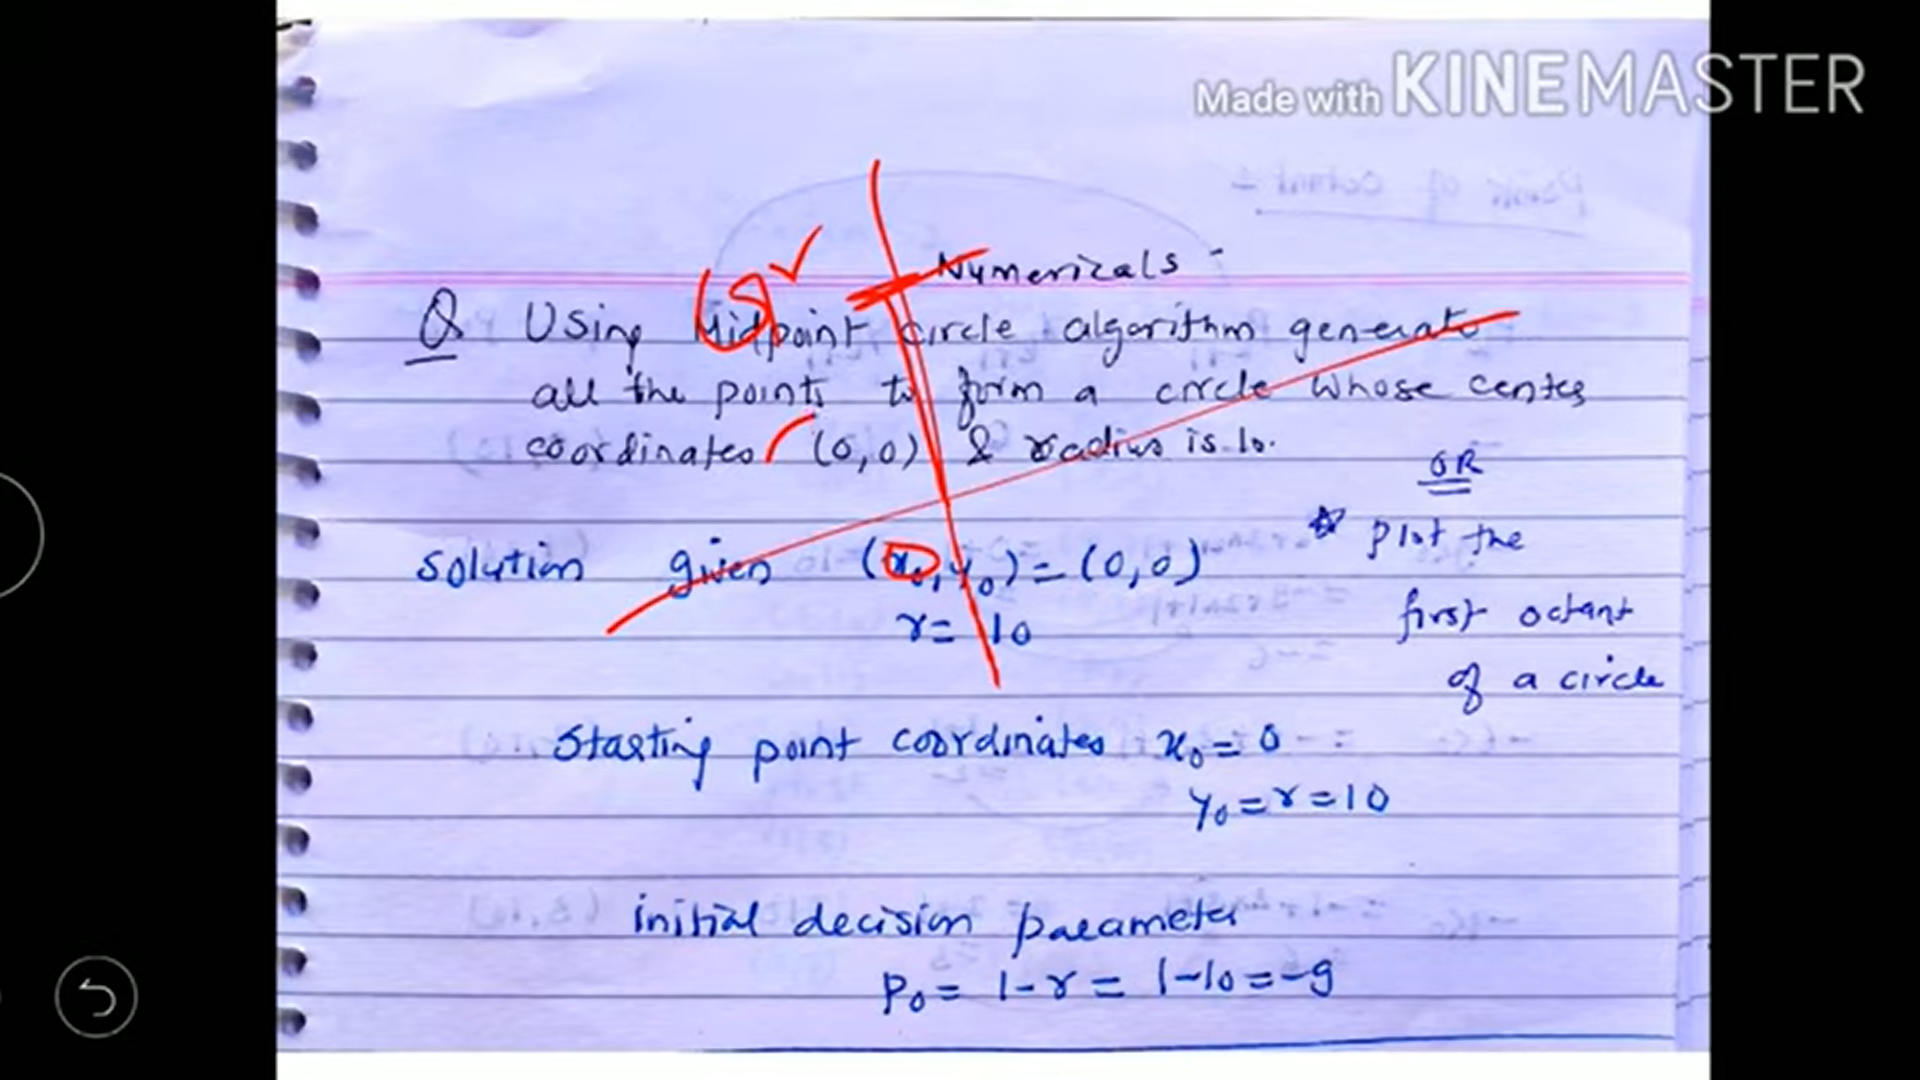 Made with KINEMASTER
Numericals -
Q Using Midpoint circle algorithm generate
all the points to form a circle whose center
coordinates (0,0) & radius is 10.
OR
plot the
first octant
of a circle
solution given (x0, y0) = (0,0)
r = 10
Starting point coordinates x0 = 0
y0 = r = 10
initial decision parameter
P0 = 1-r = 1-10 = -9